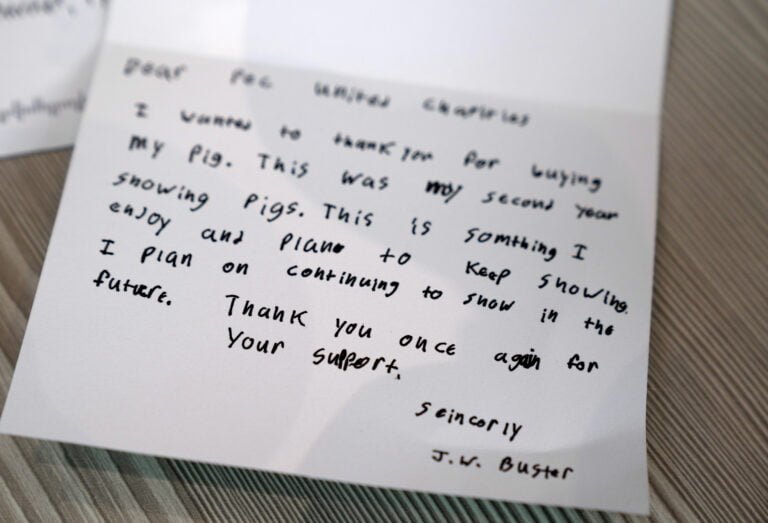 Dear Pec United Charities
I wanted to thank you for buying
my pig. This was my second year
showing pigs. This is somthing I
enjoy and plan to keep showing.
I plan on continuing to show in the
future. Thank you once again for
your support.
Seincorly
J.W. Buster